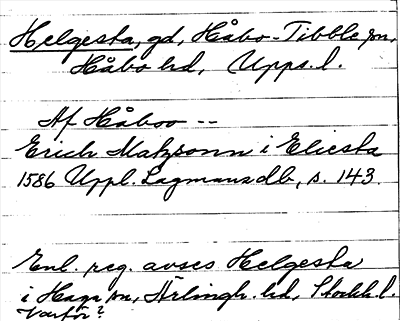 Helgesta, gd, Håbo-Tibble sn,
Håbo hd, Upps. l.
Af Håboo --
Erich Matzsonn i Elicsta
1586 Uppl. Lagmansdb, s. 143.
Enl. reg. avses Helgesta
i Haga sn, Ärlingh. hd, Stockh. l.
Varför?